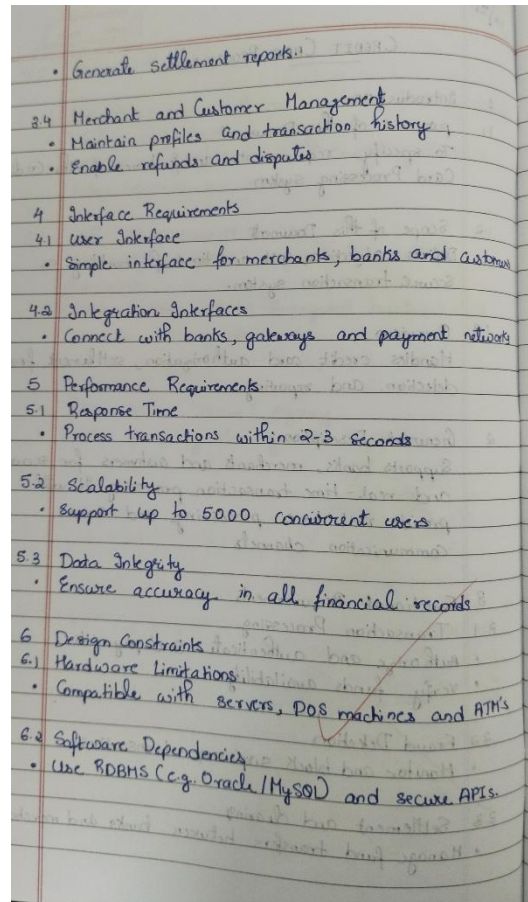 • Generate settlement reports.
3.4 Merchant and Customer Management
• Maintain profiles and transaction history
• Enable refunds and disputes
4 Interface Requirements
4.1 User Interface
• Simple interface for merchants, banks and customers
4.2 Integration Interfaces
• Connect with banks, gateways and payment networks
5 Performance Requirements
5.1 Response Time
• Process transactions within 2-3 seconds
5.2 Scalability
• Support up to 5000 concurrent users
5.3 Data Integrity
• Ensure accuracy in all financial records
6 Design Constraints
6.1 Hardware Limitations
• Compatible with servers, POS machines and ATM's
6.2 Software Dependencies
• Use RDBMS (e.g. Oracle/MySQL) and secure APIs.